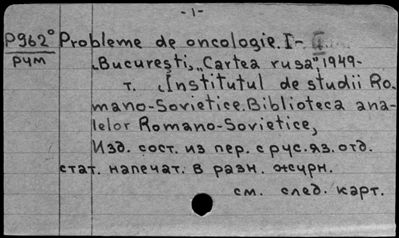 -1-
Р962° Probleme de oncologie. I-
рум București, „Cartea rusa", 1949-
т. Institutul de studii Ro-
mano-Sovietice. Biblioteca ana-
lelor Romano-Sovietice,
Изд. сост. из пер. с рус. яз. отд.
стат. напечат. в разн. журн.
см. след. карт.